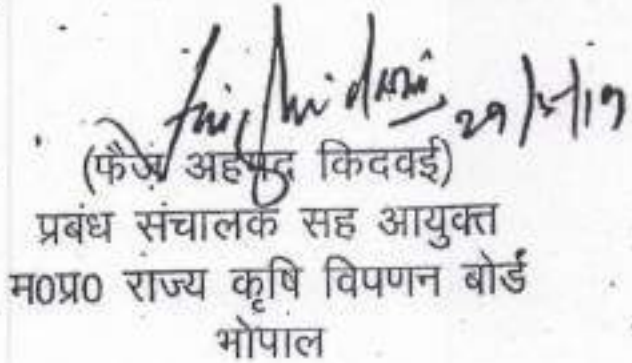 29/5/19
(फैज अहमद किदवई)
प्रबंध संचालक सह आयुक्त
म0प्र0 राज्य कृषि विपणन बोर्ड
भोपाल